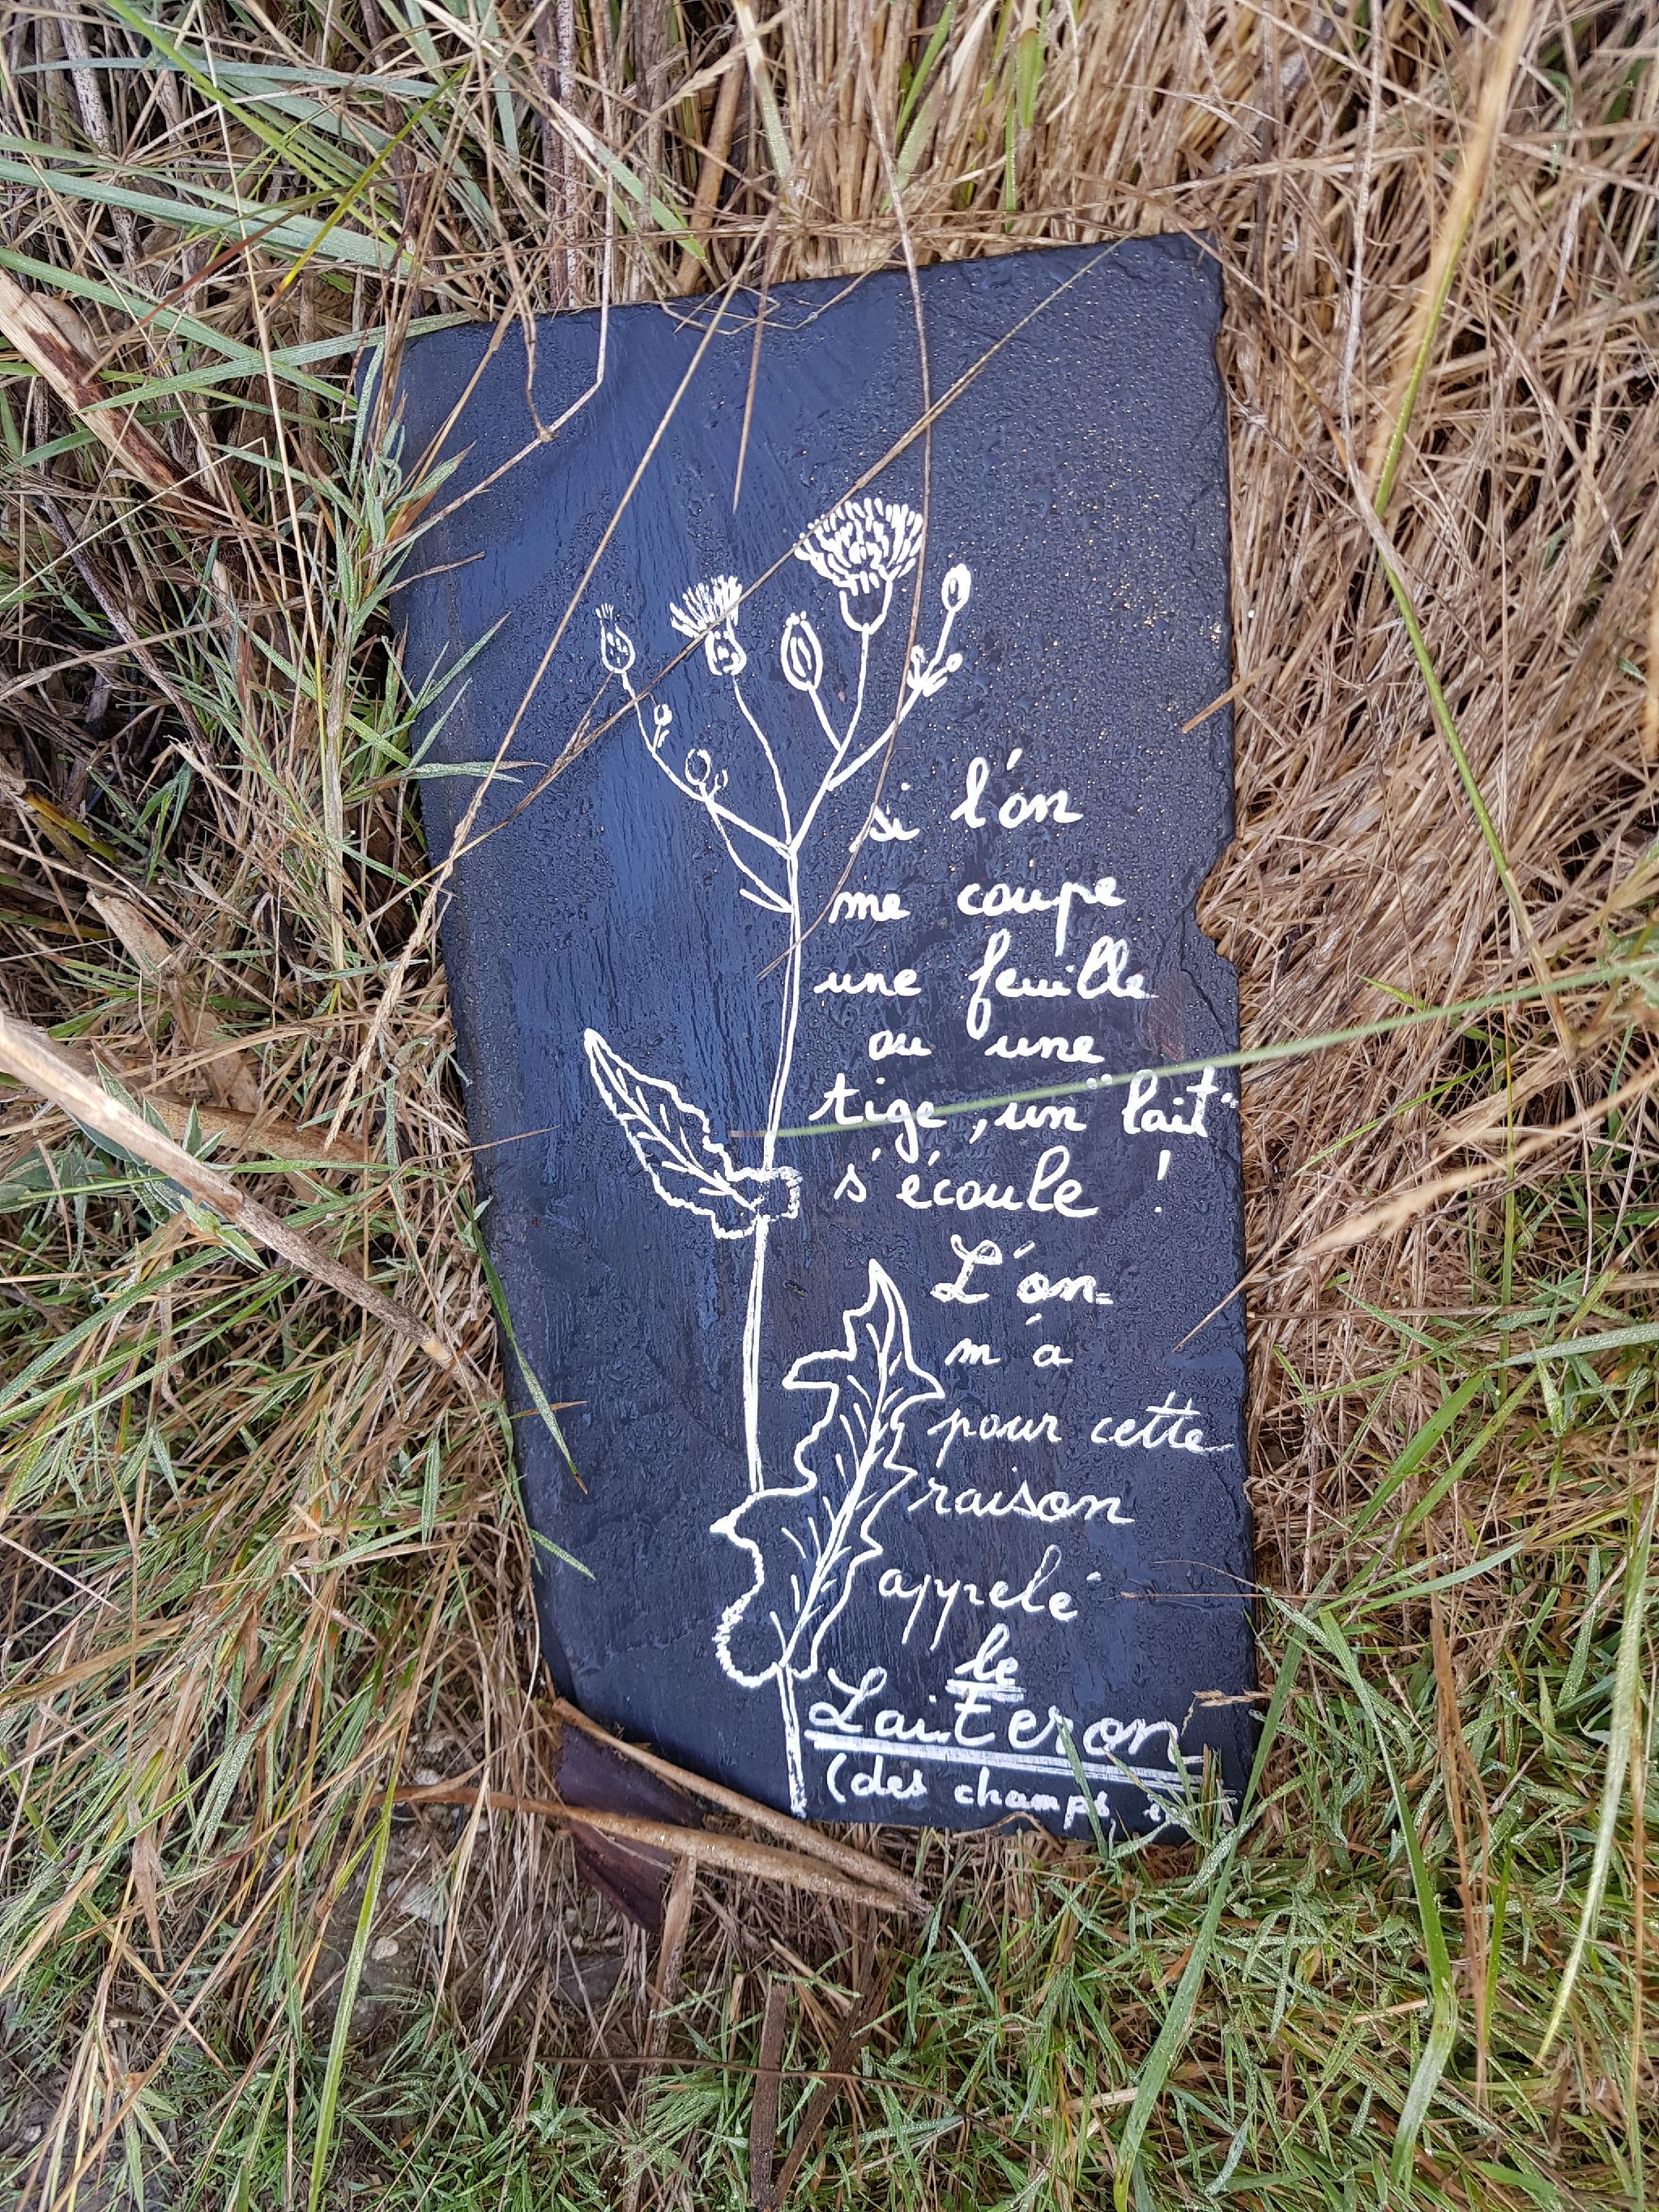 si l'on
me coupe
une feuille
ou une
tige, un "lait"
s'écoule !
L'on
m'a
pour cette
raison
appelé
le
Laiteron
(des champs